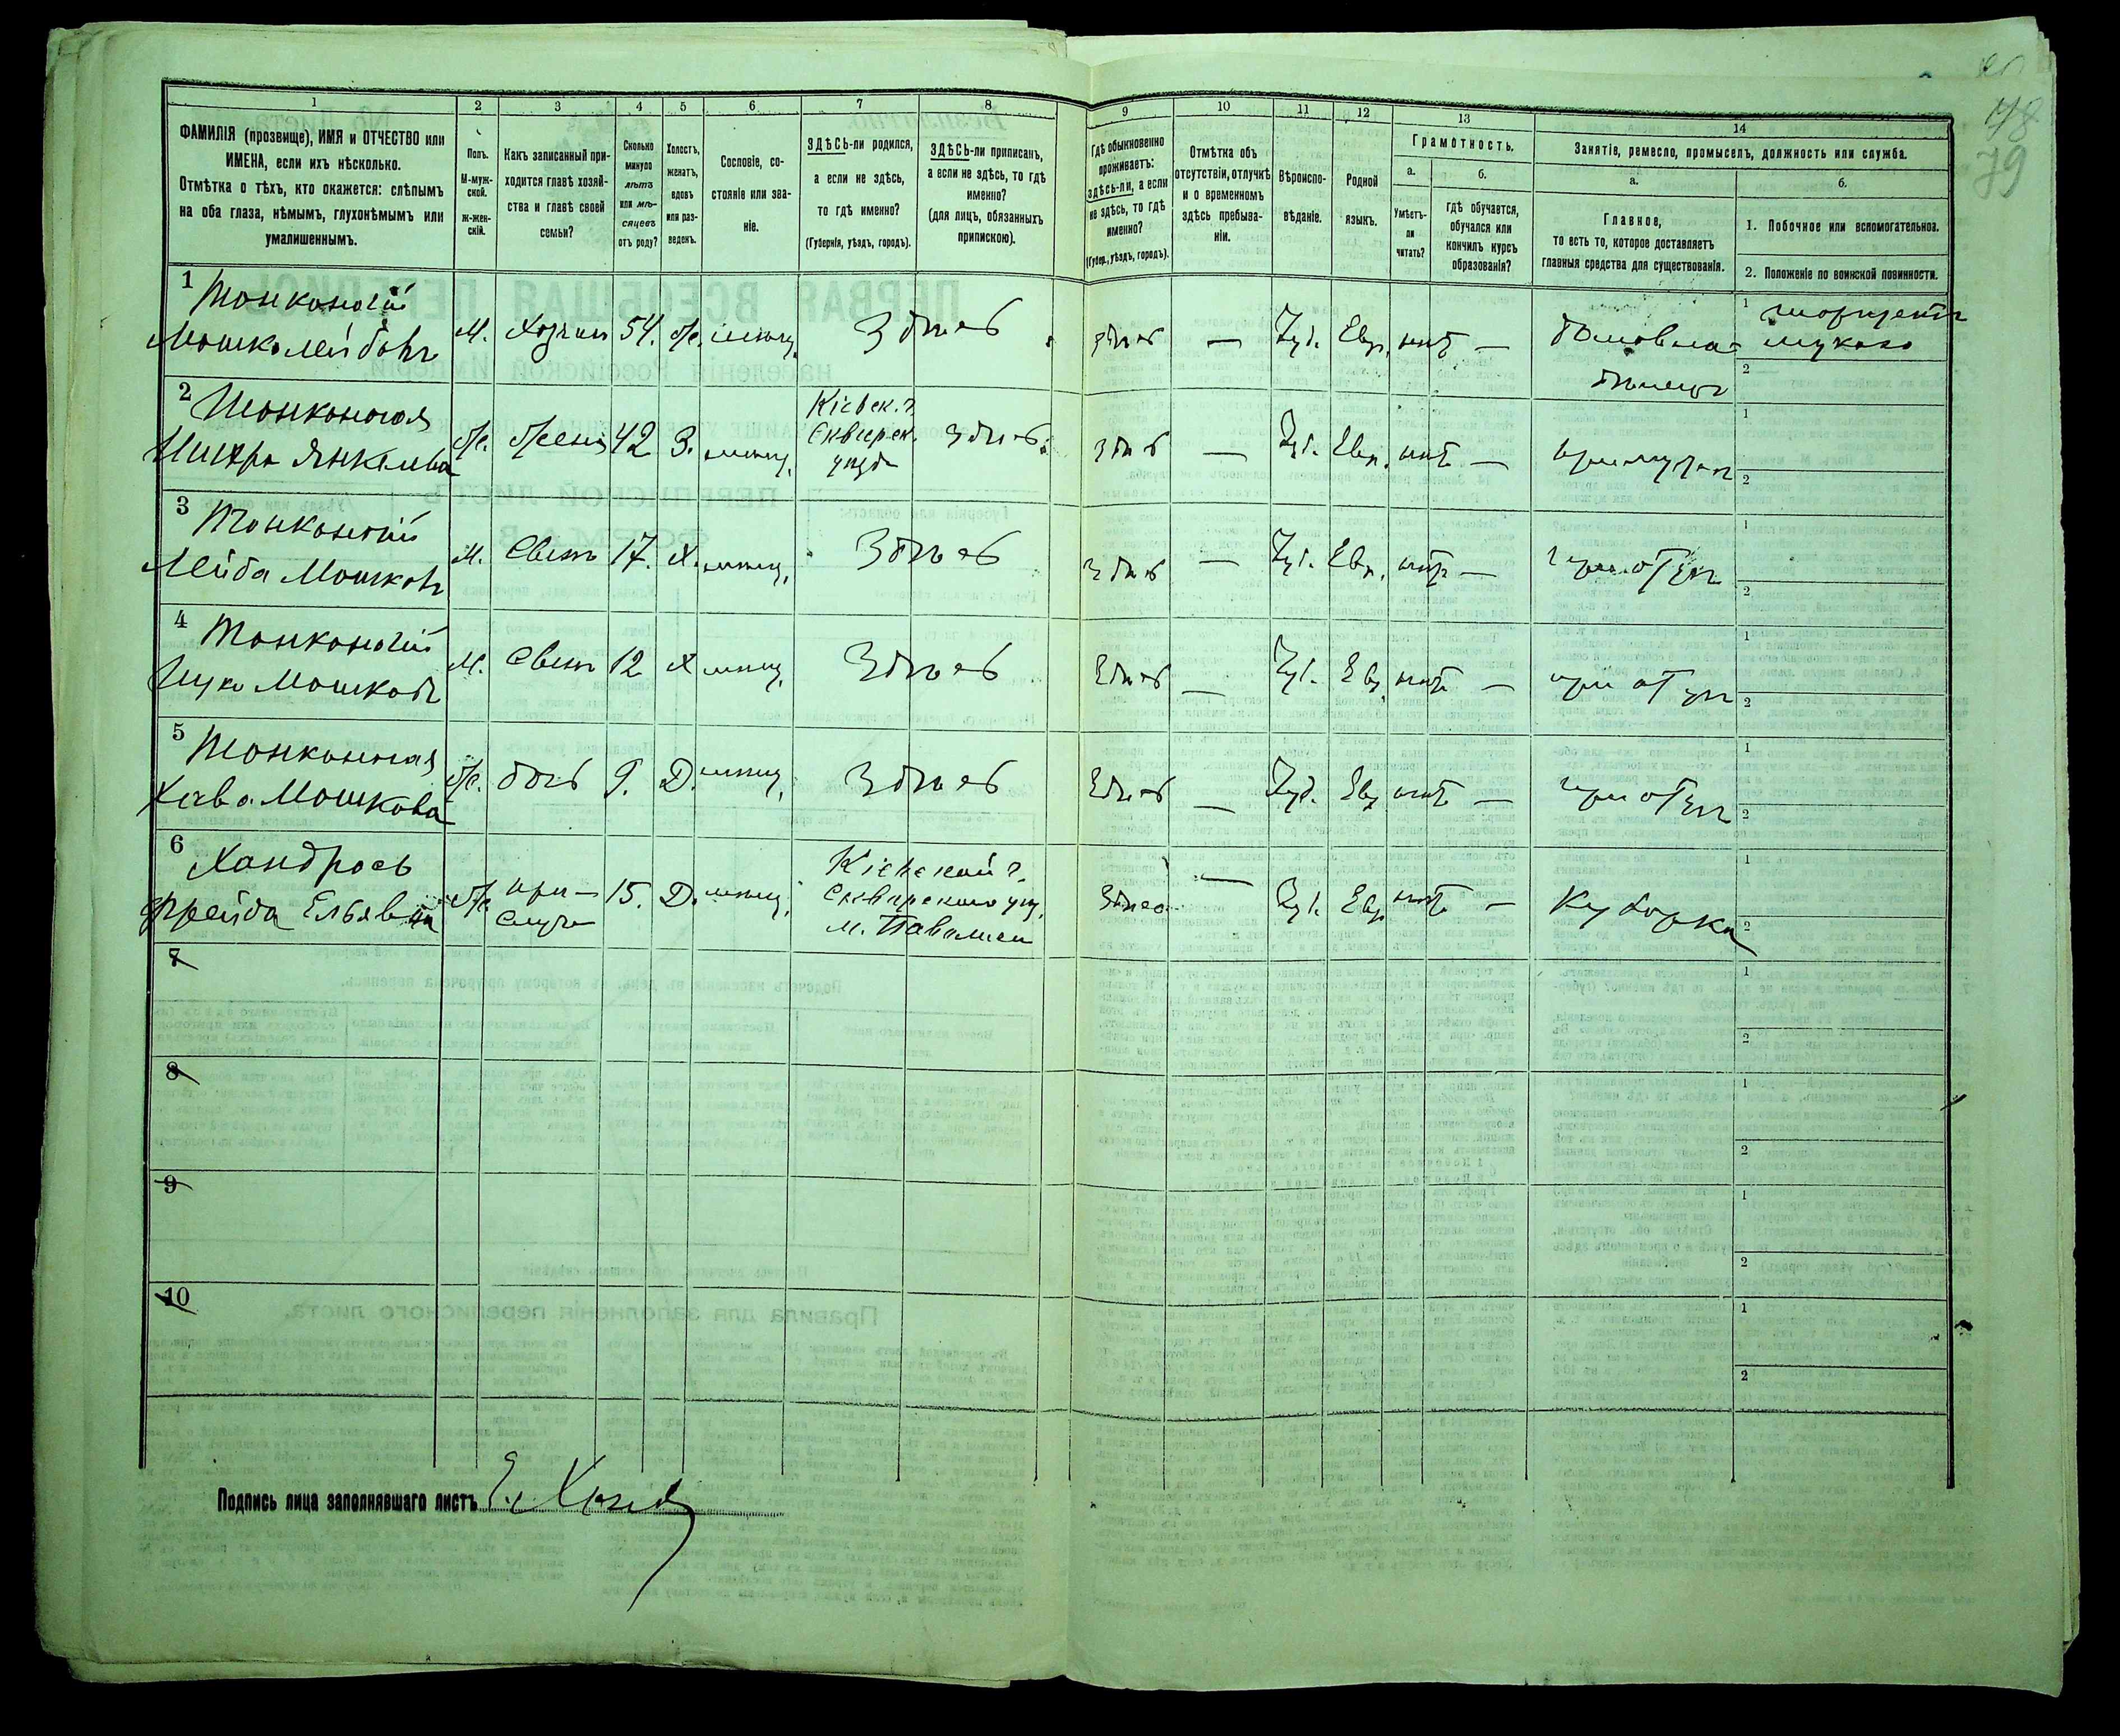 78
79
1
2
3
4
5
6
7
8
9
10
11
12
13
14
ФАМИЛІЯ (прозвище), ИМЯ и ОТЧЕСТВО или
ИМЕНА, если ихъ нѣсколько.
Отмѣтка о тѣхъ, кто окажется: слѣпымъ
на оба глаза, нѣмымъ, глухонѣмымъ или
умалишеннымъ.
Полъ.
М-муж-
ской.
Ж-жен-
скій.
Какъ записанный при-
ходится главѣ хозяй-
ства и главѣ своей
семьи?
Сколько
минуло
лѣтъ
или мѣ-
сяцевъ
отъ роду?
Холостъ,
женатъ,
вдовъ
или раз-
веденъ.
Сословіе, со-
стояніе или зва-
ніе.
ЗДѢСЬ-ли родился,
а если не здѣсь,
то гдѣ именно?
(Губернія, уѣздъ, городъ).
ЗДѢСЬ-ли приписанъ,
а если не здѣсь, то гдѣ
именно?
(для лицъ, обязанныхъ
припискою).
Гдѣ обыкновенно
проживаетъ:
здѣсь-ли, а если
не здѣсь, то гдѣ
именно?
(Губер., уѣздъ, городъ).
Отмѣтка объ
отсутствіи, отлучкѣ
и о временномъ
здѣсь пребыва-
ніи.
Вѣроиспо-
вѣданіе.
Родной
языкъ.
Грамотность.
а.
Умѣетъ-
ли
читать?
б.
гдѣ обучается,
обучался или
кончилъ курсъ
образованія?
Занятіе, ремесло, промыселъ, должность или служба.
а.
Главное,
то есть то, которое доставляетъ
главныя средства для существованія.
б.
1. Побочное или вспомогательное.
2. Положеніе по воинской повинности.
1 Тонконогій
Мошко Лейбовъ
М. Хозяин 54. ж. мѣщ. Здѣсь здѣсь — Іуд. Евр. нѣтъ — домовла-
дѣлецъ
1 торгуетъ
мукою
2
2 Тонконогая
Янкелева
ж. жена 42 З. мѣщ.
Кіевск. г.
Сквирск.
уѣзда
Здѣсь здѣсь — Іуд. Евр. нѣтъ — при мужѣ
1
2
3 Тонконогій
Лейба Мошковъ
М. Сынъ 17. Х. мѣщ. Здѣсь здѣсь — Іуд. Евр. нѣтъ — при отцѣ
1
2
4 Тонконогій
Мошковъ
М. Сынъ 12 Х мѣщ. Здѣсь Здѣсь — Іуд. Евр. нѣтъ — при отцѣ
1
2
5 Тонконогая
Хава Мошкова
ж. дочь 9. Д. мѣщ. Здѣсь Здѣсь — Іуд. Евр нѣтъ — при отцѣ
1
2
6 Хандрось
Фрейда
ж. при-
слуга
15. Д. мѣщ.
Кіевской г.
Сквирскаго уѣз.
м. Паволочи
Здѣсь — Іуд. Евр нѣтъ — Кухарка
1
2
7
1
2
8
1
2
9
1
2
10
1
2
Подпись лица заполнявшаго листъ